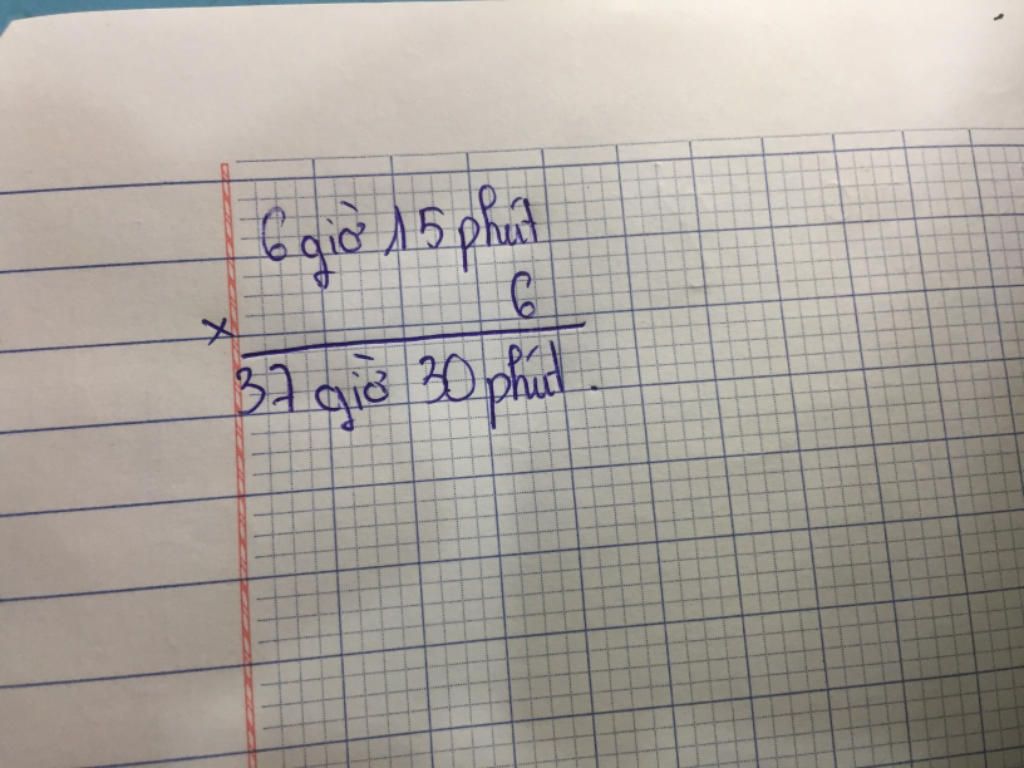 6 giờ 15 phút
6
×
37 giờ 30 phút.